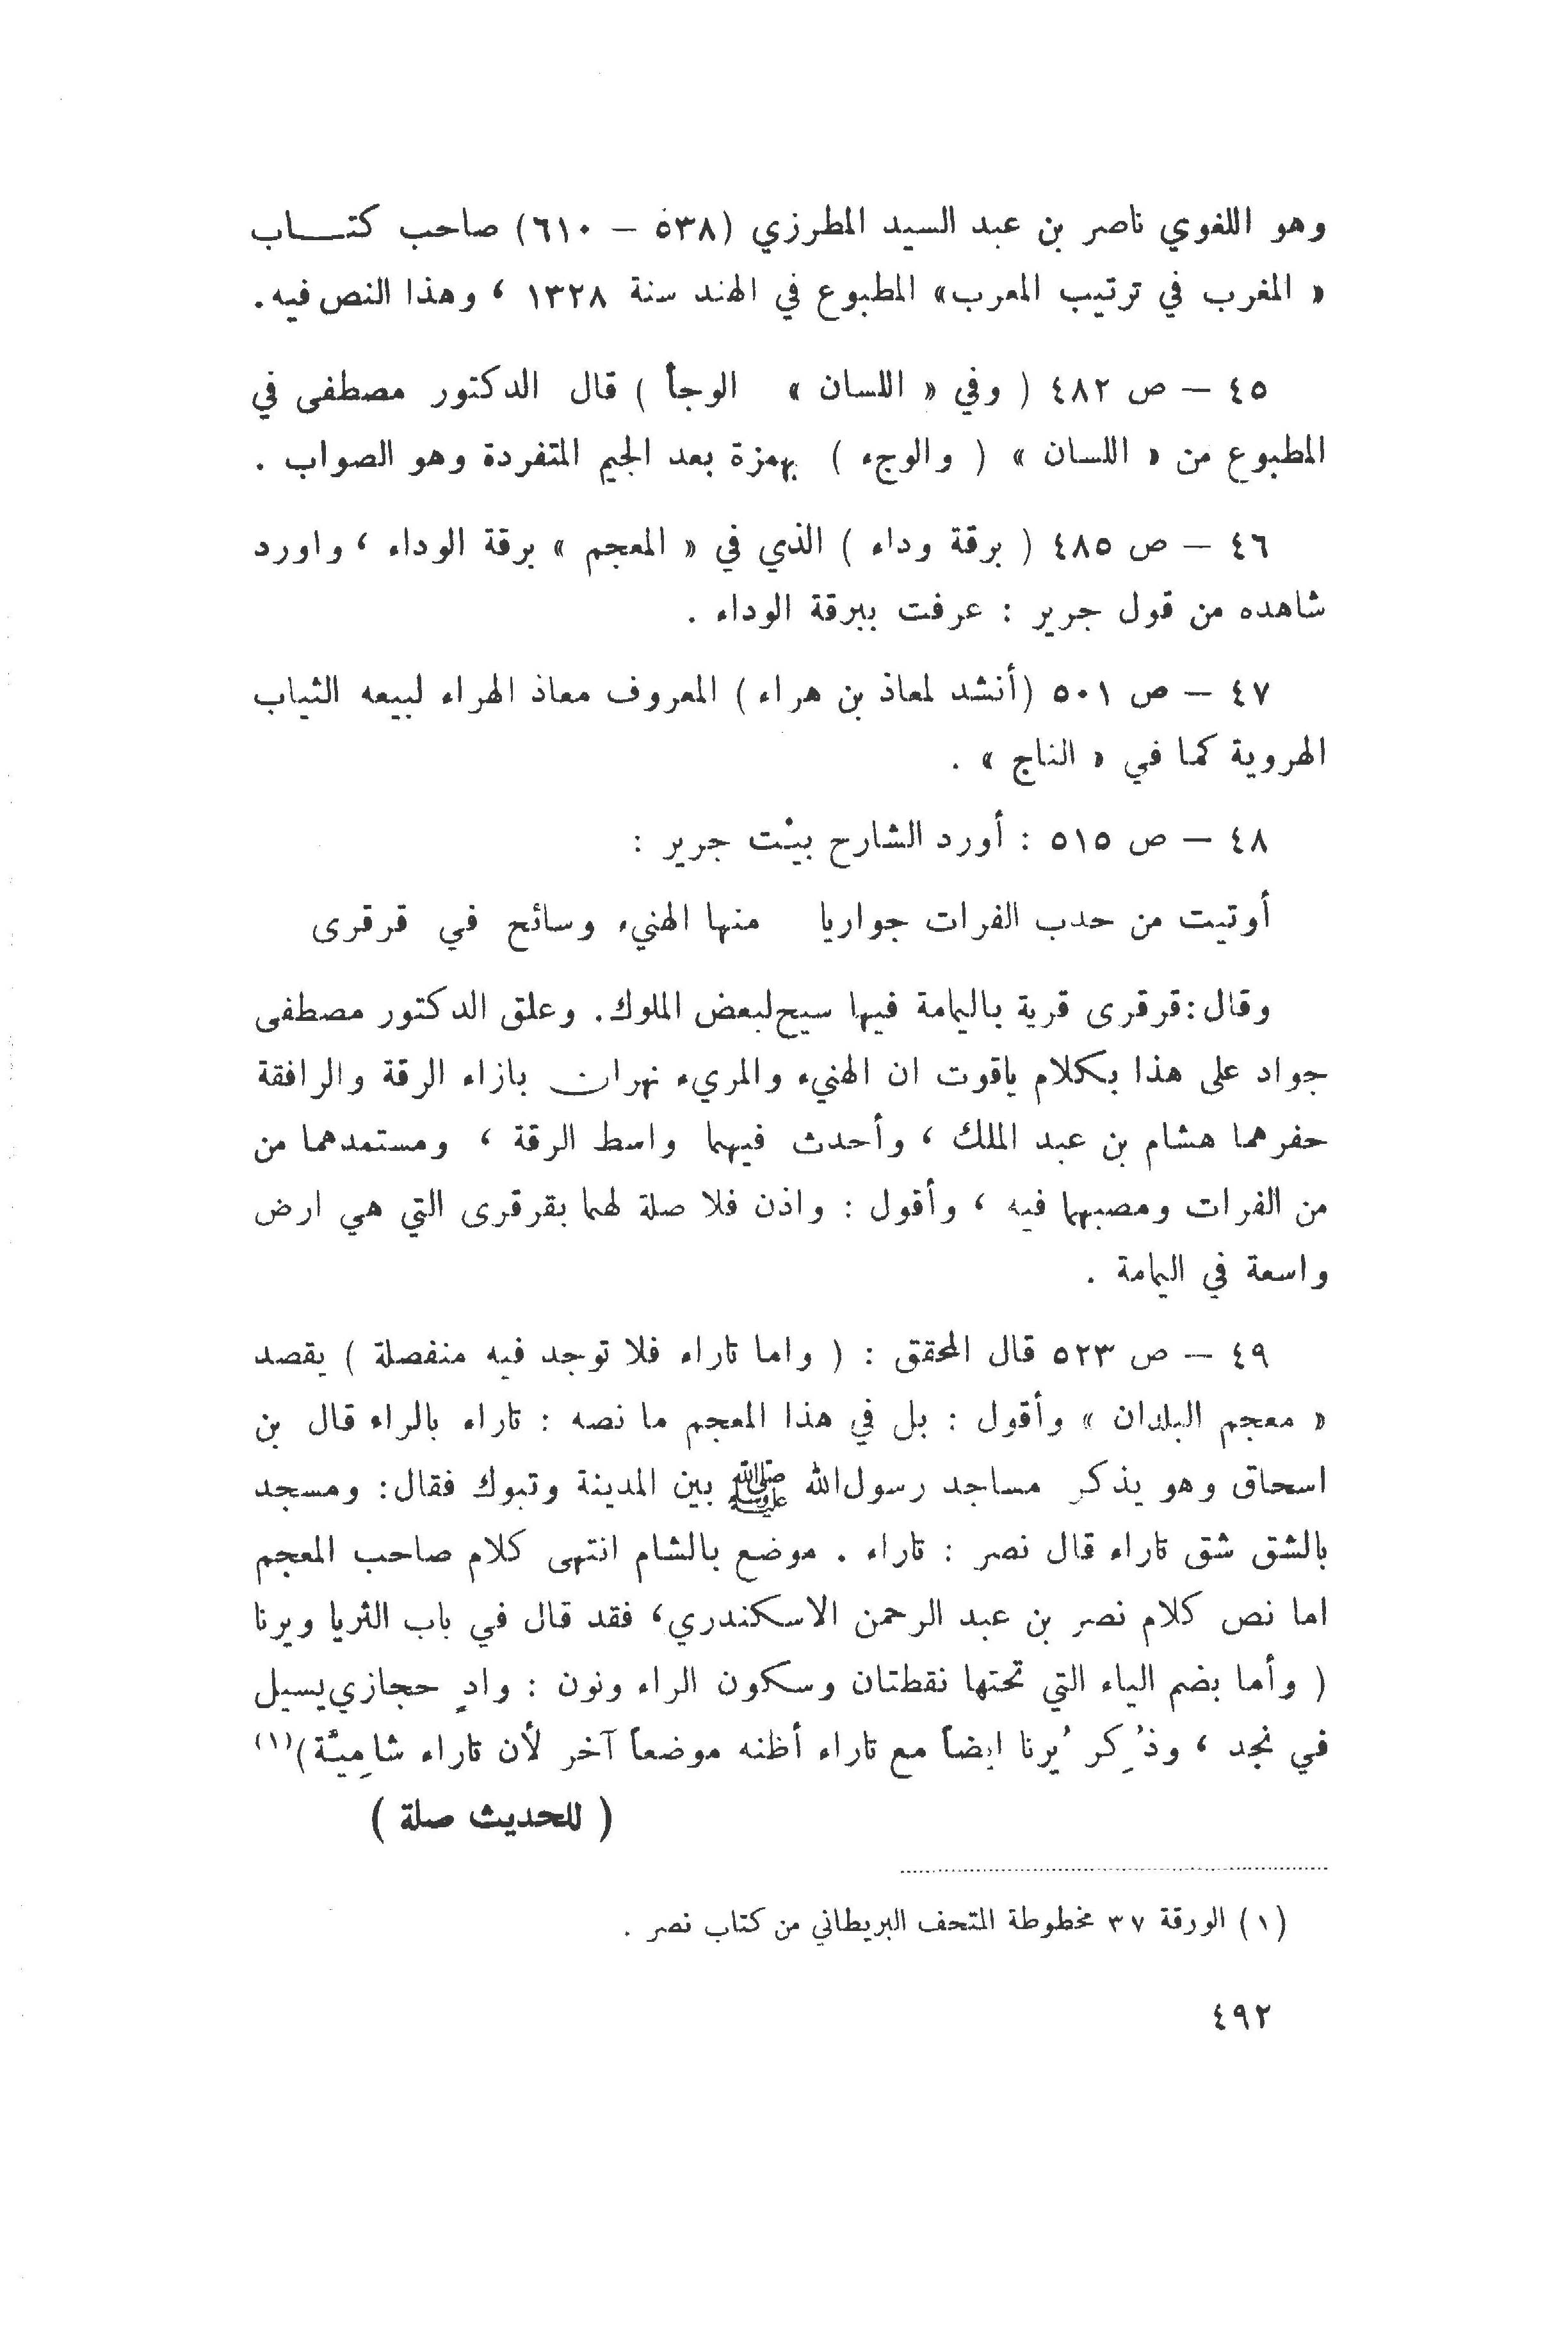 وهو اللغوي ناصر بن عبد السيد المطرزي (٥٣٨ – ٦١٠) صاحب كتـــاب
« المغرب في ترتيب المعرب» المطبوع في الهند سنة ١٣٢٨ ، وهذا النص فيه.
٤٥ – ص ٤٨٢ ( وفي « اللسان » الوجأ ) قال الدكتور مصطفى في
المطبوع من « اللسان » ( والوجء ) بهمزة بعد الجيم المتفردة وهو الصواب .
٤٦ – ص ٤٨٥ ( برقة وداء ) الذي في « المعجم » برقة الوداء ، واورد
شاهده من قول جرير : عرفت ببرقة الوداء .
٤٧ – ص ٥٠١ (أنشد لمعاذ بن هراء ) المعروف معاذ الهراء لبيعه الثياب
الهروية كما في « التاج » .
٤٨ – ص ٥١٥ : أورد الشارح بيْت جرير :
أوتيت من حدب الفرات جواريا منها الهنيء وسائح في قرقرى
وقال : قرقرى قرية باليمامة فيها سيح لبعض الملوك. وعلق الدكتور مصطفى
جواد على هذا بكلام ياقوت ان الهنيء والمريء نهران بازاء الرقة والرافقة
حفرهما هشام بن عبد الملك ، وأحدث فيهما واسط الرقة ، ومستمدهما من
من الفرات ومصبهما فيه ، وأقول : واذن فلا صلة لهما بقرقرى التي هي ارض
واسعة في اليمامة .
٤٩ – ص ٥٢٣ قال المحقق : ( واما تاراء فلا توجد فيه منفصلة ) يقصد
« معجم البلدان » وأقول : بل في هذا المعجم ما نصه : تاراء بالراء قال بن
اسحاق وهو يذكر مساجد رسول الله ﷺ بين المدينة وتبوك فقال : ومسجد
بالشق شق تاراء قال نصر : تاراء . موضع بالشام انتهى كلام صاحب المعجم
اما نص كلام نصر بن عبد الرحمن الاسكندري، فقد قال في باب الثريا ويرنا
( وأما بضم الياء التي تحتها نقطتان وسكون الراء ونون : وادٍ حجازي يسيل
في نجد ، وذُكِر يُرنا ايضاً مع تاراء أظنه موضعاً آخر لأن تاراء شامِيّة)(١)
( للحديث صلة )
(١) الورقة ٣٧ مخطوطة المتحف البريطاني من كتاب نصر .
٤٩٢